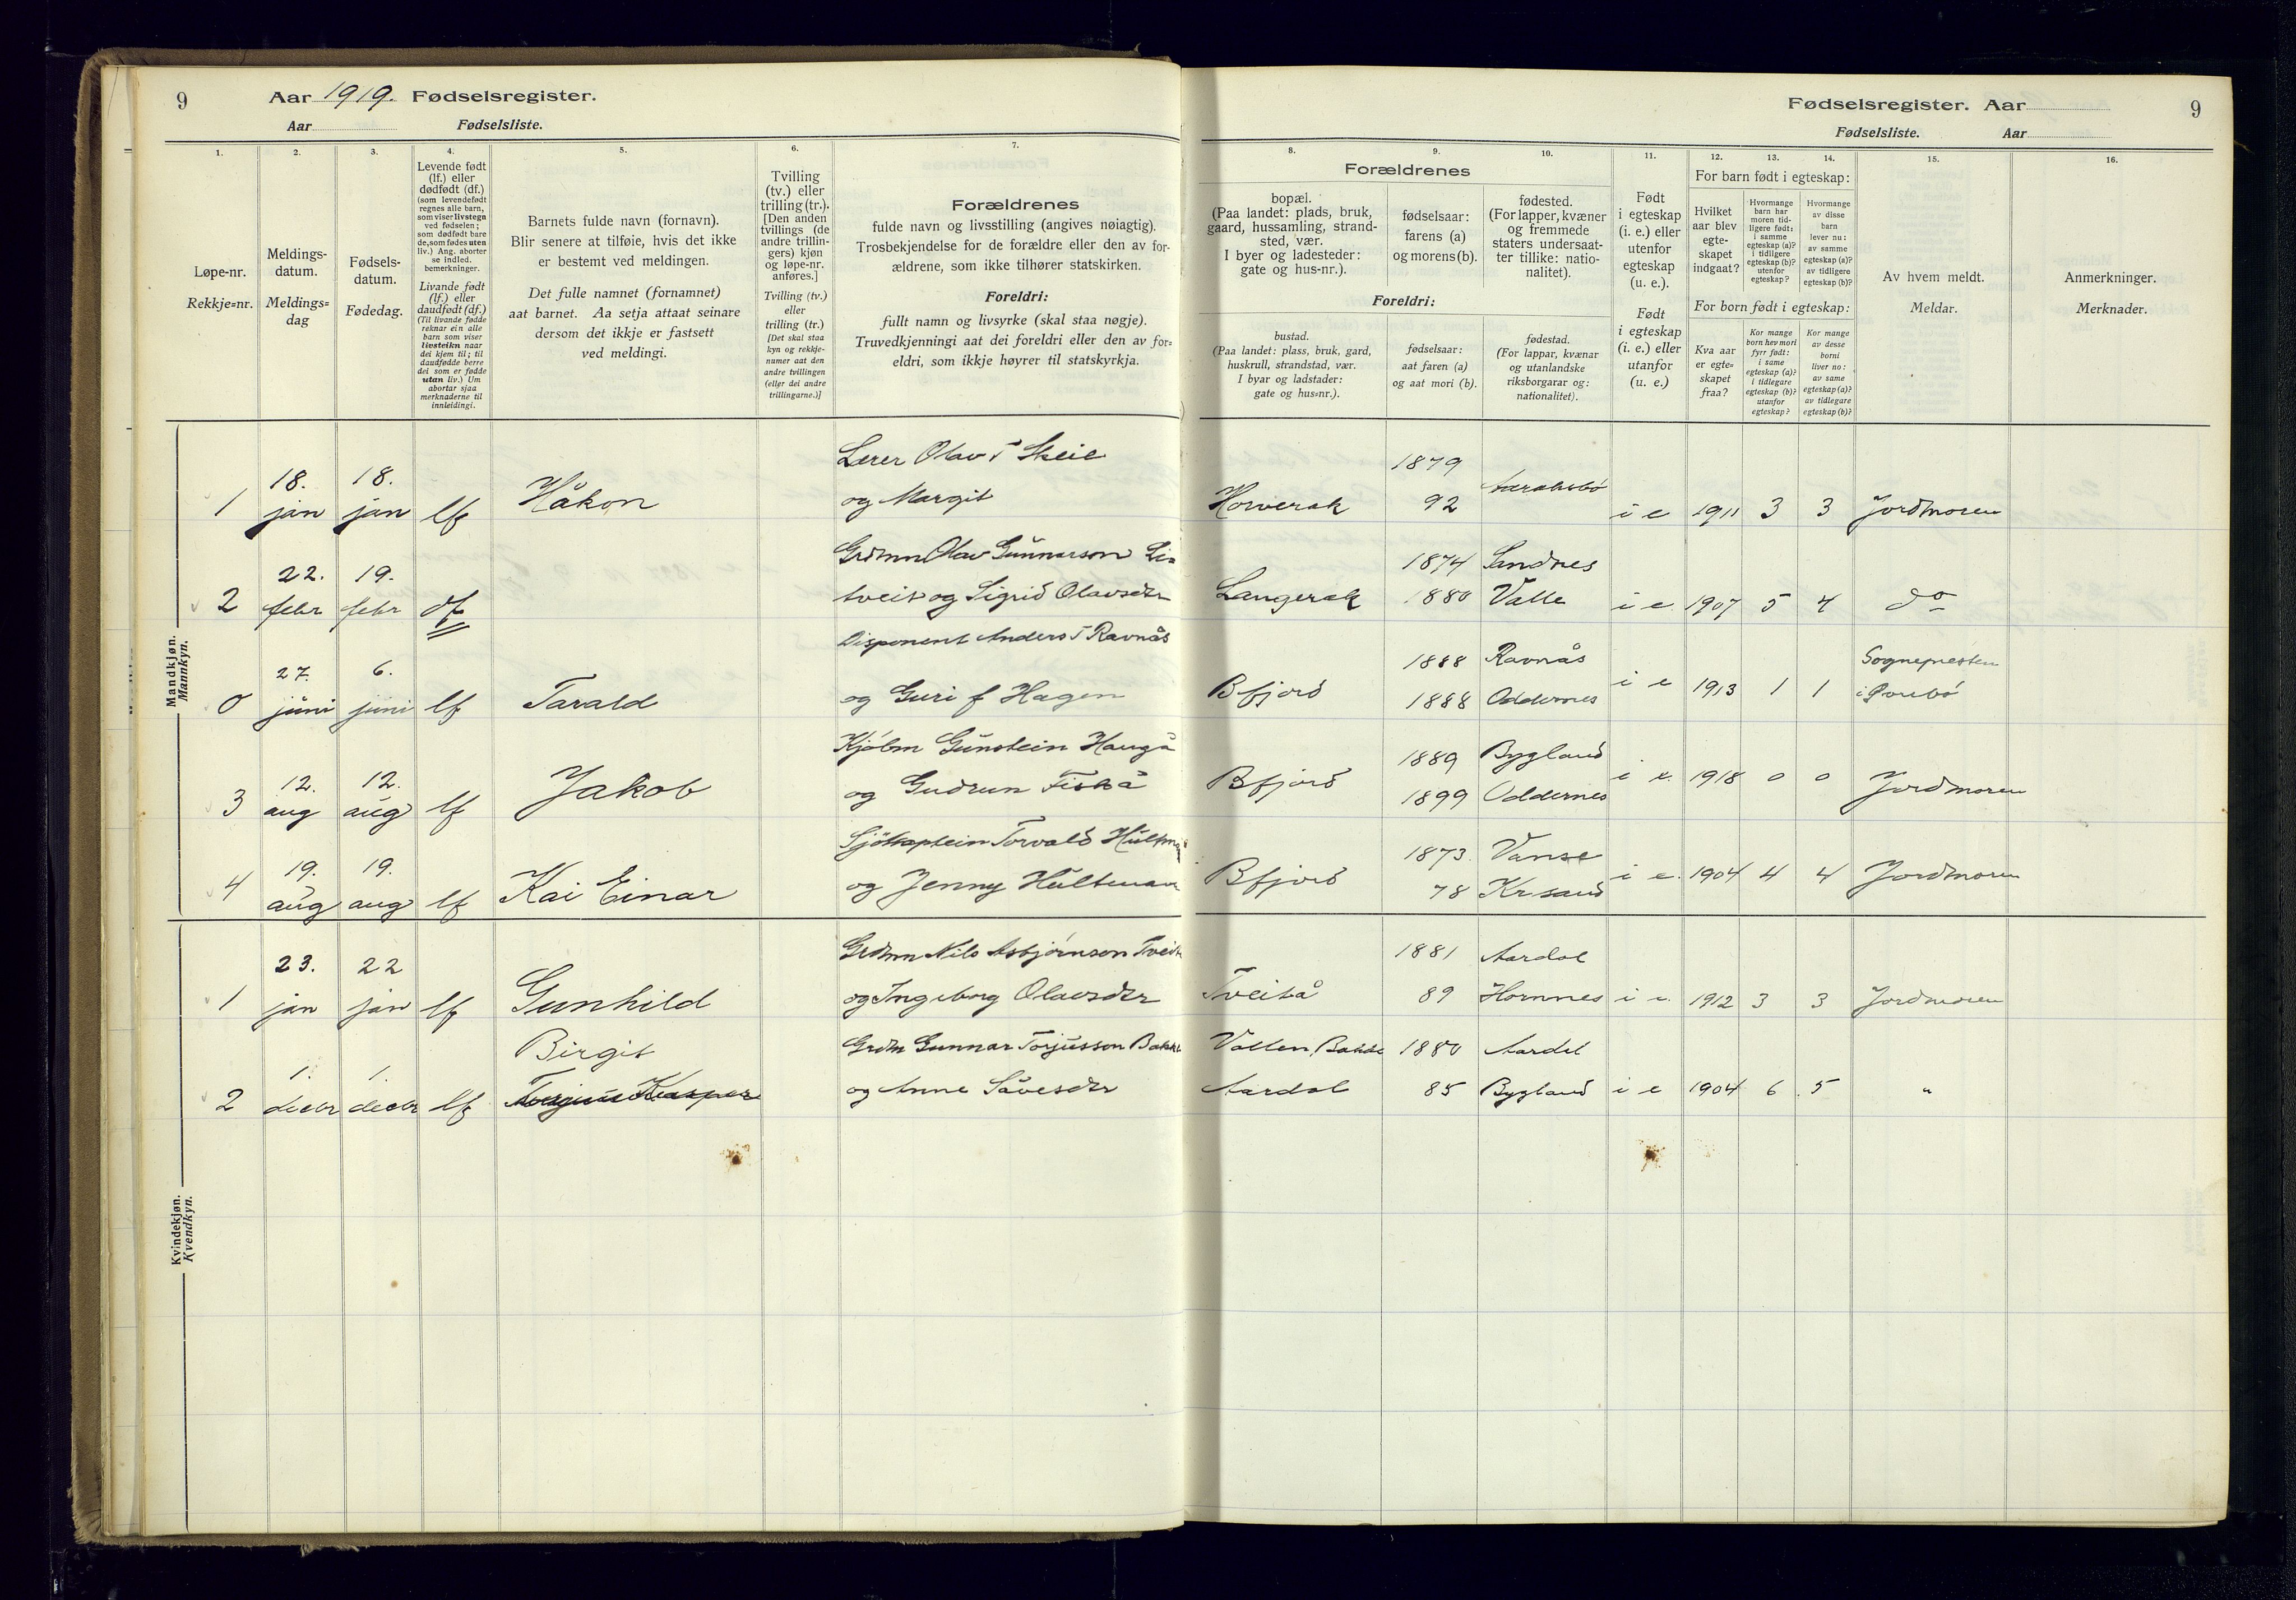 9 Aar 1919. Fødselsregister.
Aar Fødselsliste.
1.
Løpe-nr.
Rekkje=nr.
2.
Meldings-
datum.
Meldings=
dag
3.
Fødsels-
datum.
Fødedag.
4.
Levende født
(lf.) eller
dødfødt (df.)
(som levendefødt
regnes alle barn,
som viser livstegn
ved fødselen;
som dødfødt bare
de, som fødes uten
liv.) Ang. aborter
se indled.
bemerkninger.
Livande født
(lf.) eller
daudfødt (df.)
(Til livande fødde
reknar ein alle
barn som viser
livsteikn naar
dei kjem til; til
daudfødde berre
dei som er fødde
utan liv.) Um
abortar sjaa
merknaderne til
innleidingi.
5.
Barnets fulde navn (fornavn).
Blir senere at tilføie, hvis det ikke
er bestemt ved meldingen.
Det fulle namnet (fornamnet)
aat barnet. Aa setja attaat seinare
dersom det ikkje er fastsett
ved meldingi.
6.
Tvilling
(tv.) eller
trilling (tr.).
[Den anden
tvillings (de
andre trillin-
gers) kjøn
og løpe-nr.
anføres.]
Tvilling (tv.)
eller
trilling (tr.)
[Det skal staa
kyn og rekkje-
numer aat den
andre tvillingen
(eller dei andre
trillingarne.)]
7.
Forældrenes
fulde navn og livsstilling (angives nøiagtig).
Trosbekjendelse for de forældre eller den av for-
ældrene, som ikke tilhører statskirken.
Foreldri:
fullt namn og livsyrke (skal staa nøgje).
Truvedkjenningi aat dei foreldri eller den av for=
eldri, som ikkje høyrer til statskyrkja.
Fødselsregister. Aar 9
Fødselsliste. Aar
Forældrenes
8.
bopæl.
(Paa landet: plads, bruk,
gaard, hussamling, strand-
sted, vær.
I byer og ladesteder:
gate og hus-nr.).
9.
fødselsaar:
farens (a)
og morens (b).
10.
fødested.
(For lapper, kvæner
og fremmede
staters undersaat-
ter tillike: natio-
nalitet).
Foreldri:
bustad.
(Paa landet: plass, bruk, gard,
huskrull, strandstad, vær.
I byar og ladstader:
gate og hus=nr.).
fødselsaar:
aat faren (a)
og aat mori (b).
fødestad.
(For lappar, kvænar
og utanlandske
riksborgarar og:
nationalitet).
11.
Født
i egteskap
(i. e.) eller
utenfor
egteskap
(u. e.).
Født
i egteskap
(i. e.) eller
utanfor
(u. e.)
12. 13. 14.
For barn født i egteskap:
Hvilket
aar blev
egte-
skapet
indgaat?
Hvormange
barn har
moren tid-
ligere født:
i samme
egteskap (a)?
i tidligere
egteskap (b)?
utenfor
egteskap?
Hvormange
av disse
barn
lever nu:
av samme
egteskap (a)?
av tidligere
egteskap (b)?
For born født i egteskap:
Kva aar
er egte-
skapet
fraa?
Kor mange
born hev mori
fyrr født:
i same
egteskap (a)?
i tidlegare
egteskap (b)?
utanfor
egteskap?
Kor mange
av desse
borni
liver no:
av same
egteskap (a)?
av tidlegare
egteskap (b)?
15.
Av hvem meldt.
Meldar.
16.
Anmerkninger.
Merknader.
Mandkjøn.
Mannkyn.
1 18. jan 18. jan lf Håkon Lerer Olav T Skeie
og Margit Horverak 1879 92 i e 1911 3 3 Jordmoren
2 22. febr 19. febr df Grdmn Olav Gunnarson Li=
tveit og Sigrid Olavsdtr Langerak 1874 Sandnes
1880 Valle i e 1907 5 4 do
0 27. juni 6. juni lf Tarald Disponent Anders T Ravnås
og Guri f Hagen Bfjord 1888 Ravnås
1888 Oddernes i e 1913 1 1 Sognepresten
3 12. aug 12. aug lf Jakob Kjøbm Gunstein Haugå
og Gudrun Fiskå Bfjord 1889 Bygland
1899 Oddernes i e. 1918 0 0 Jordmoren
4 19. aug 19. aug lf Kai Einar Sjökaptein Torvald
og Jenny Hultman Bfjord 1873. Vanse
78 Kr sand i e. 1904 4 4 Jordmoren
Kvindekjøn.
Kvendkyn.
1 23. jan 22 jan lf Gunhild Grdmn Nils Asbjørnson
og Ingeborg Olavsdtr Tveitå 1881 Aardal
89 Hornnes i e. 1912 3 3 Jordmoren
2 1. decbr 1. decbr lf Birgit Grdm Gunnar Torjusson Bakke
og Anne Såvesdtr Vatten, Bakke
Aardal 1880 Aardal
85 Bygland i e 1904 6 5 "